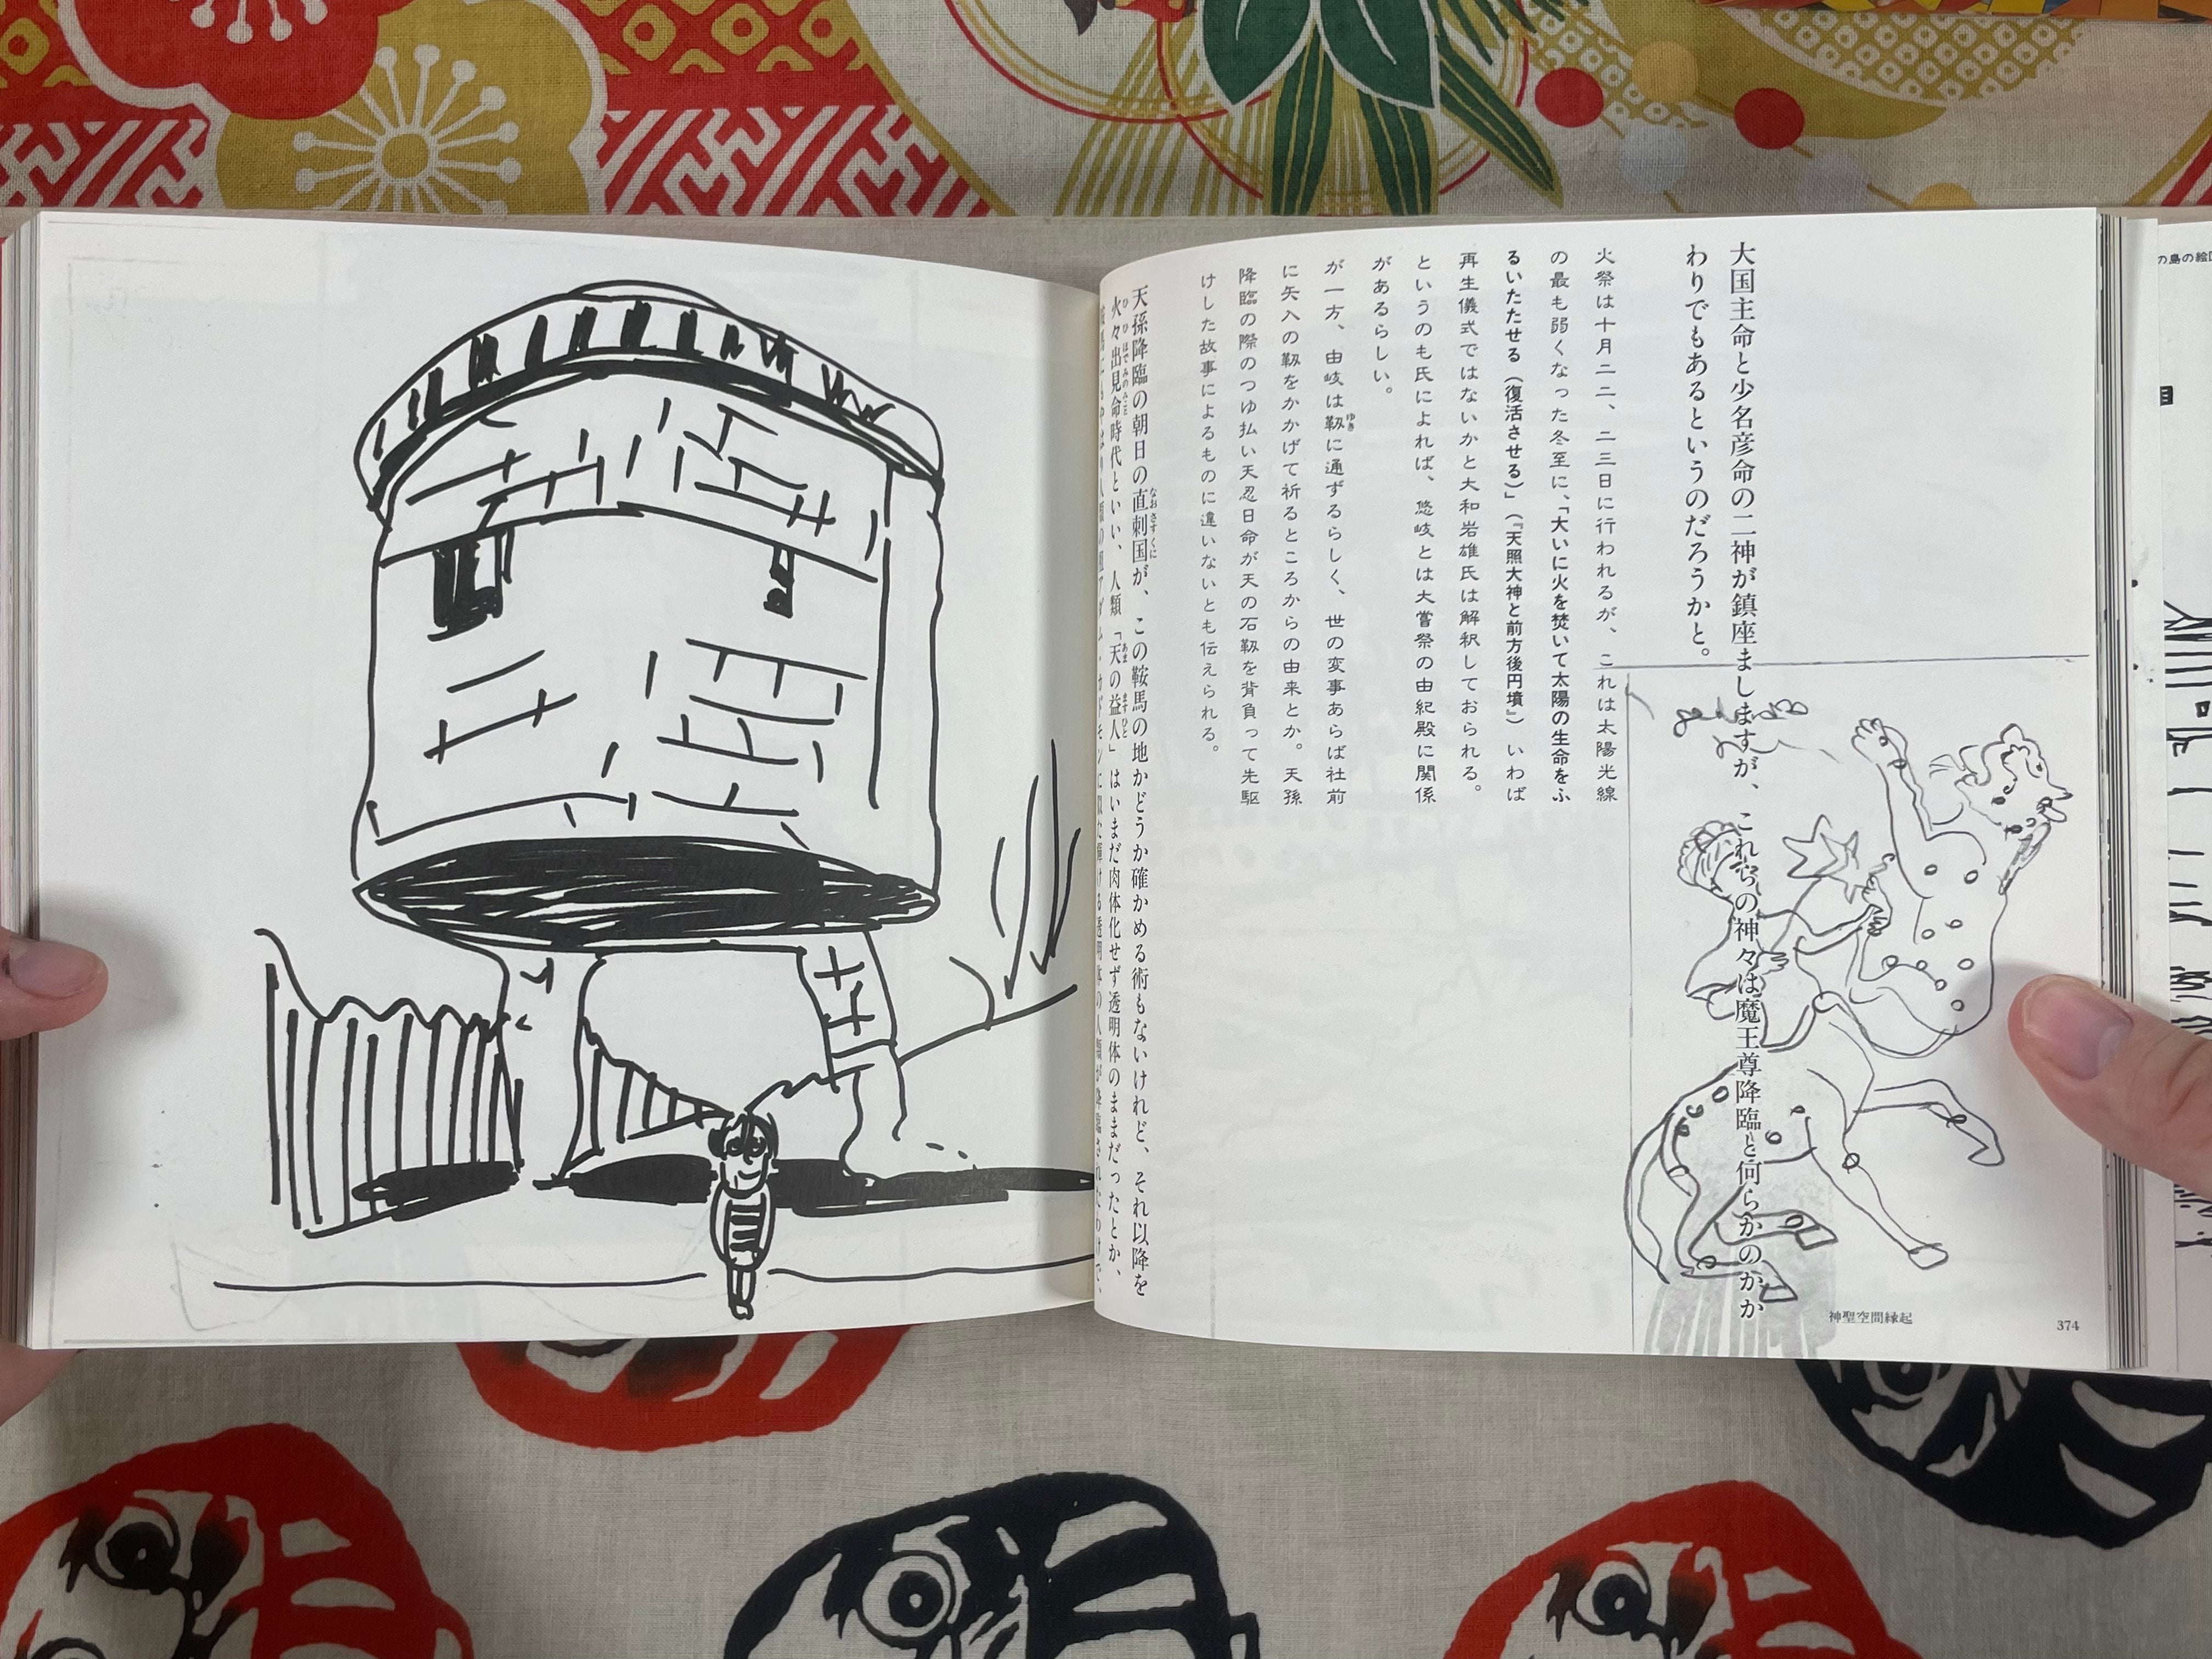 大国主命と少名彦命の二神が鎮座ましますが、これらの神々は魔王尊降臨と何らかのかか
わりでもあるというのだろうかと。
火祭は十月二二、二三日に行われるが、これは太陽光線
の最も弱くなった冬至に、「大いに火を焚いて太陽の生命をふ
るいたたせる（復活させる）」（『天照大神と前方後円墳』）いわば
再生儀式ではないかと大和岩雄氏は解釈しておられる。
というのも氏によれば、悠岐とは大嘗祭の由紀殿に関係
があるらしい。
が一方、由岐は靱に通ずるらしく、世の変事あらば社前
ゆき
に矢入の靱をかかげて祈るところからの由来とか。天孫
降臨の際のつゆ払い天忍日命が天の石靱を背負って先駆
けした故事によるものに違いないとも伝えられる。
天孫降臨の朝日の直刺国が、この鞍馬の地かどうか確かめる術もないけれど、それ以降を
なおさすくに
火々出見命時代といい、人類「天の益人」はいまだ肉体化せず透明体のままだったとか、
神聖空間縁起
374
の島の絵